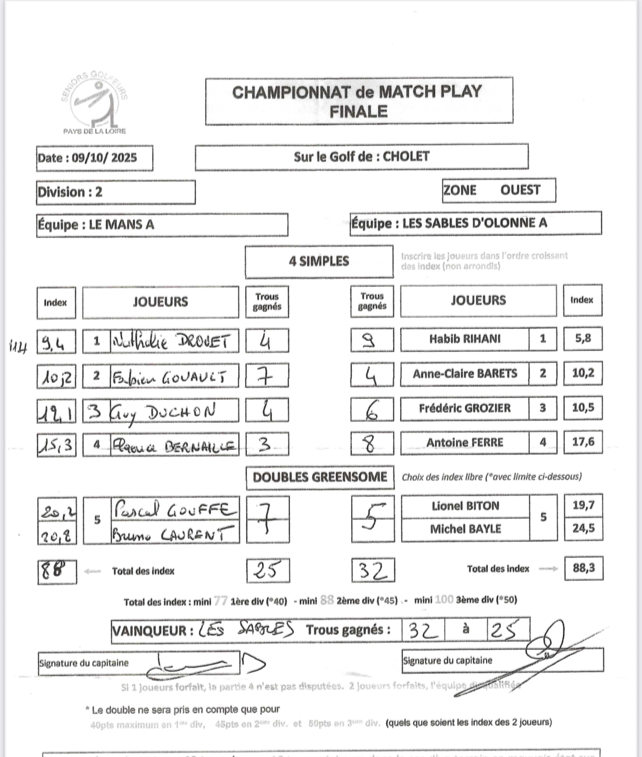 SENIORS GOLFEURS
PAYS DE LA LOIRE
CHAMPIONNAT de MATCH PLAY
FINALE
Date : 09/10/ 2025
Sur le Golf de : CHOLET
Division : 2
ZONE OUEST
Équipe : LE MANS A
Équipe : LES SABLES D'OLONNE A
4 SIMPLES
Inscrire les joueurs dans l'ordre croissant
des index (non arrondis)
Index JOUEURS Trous gagnés Trous gagnés JOUEURS Index
11,4 9,4 1 Nathalie DROUET 4 9 Habib RIHANI 1 5,8
10,2 2 Fabien GOUAULT 7 4 Anne-Claire BARETS 2 10,2
12,1 3 Guy DUCHON 4 6 Frédéric GROZIER 3 10,5
15,3 4 BERNAILLE 3 8 Antoine FERRE 4 17,6
DOUBLES GREENSOME
Choix des index libre (*avec limite ci-dessous)
20,2 5 Pascal GOUFFE 7 5 Lionel BITON 5 19,7
20,8 Bruno LAURENT Michel BAYLE 24,5
88 Total des index 25 32 Total des index 88,3
Total des index : mini 77 1ère div (*40) - mini 88 2ème div (*45) - mini 100 3ème div (*50)
VAINQUEUR : LES SABLES Trous gagnés : 32 à 25
Signature du capitaine
Signature du capitaine
Si 1 joueurs forfait, la partie 4 n'est pas disputées. 2 joueurs forfaits, l'équipe disqualifiée
* Le double ne sera pris en compte que pour
40pts maximum en 1ère div, 45pts en 2ème div. et 50pts en 3ème div. (quels que soient les index des 2 joueurs)